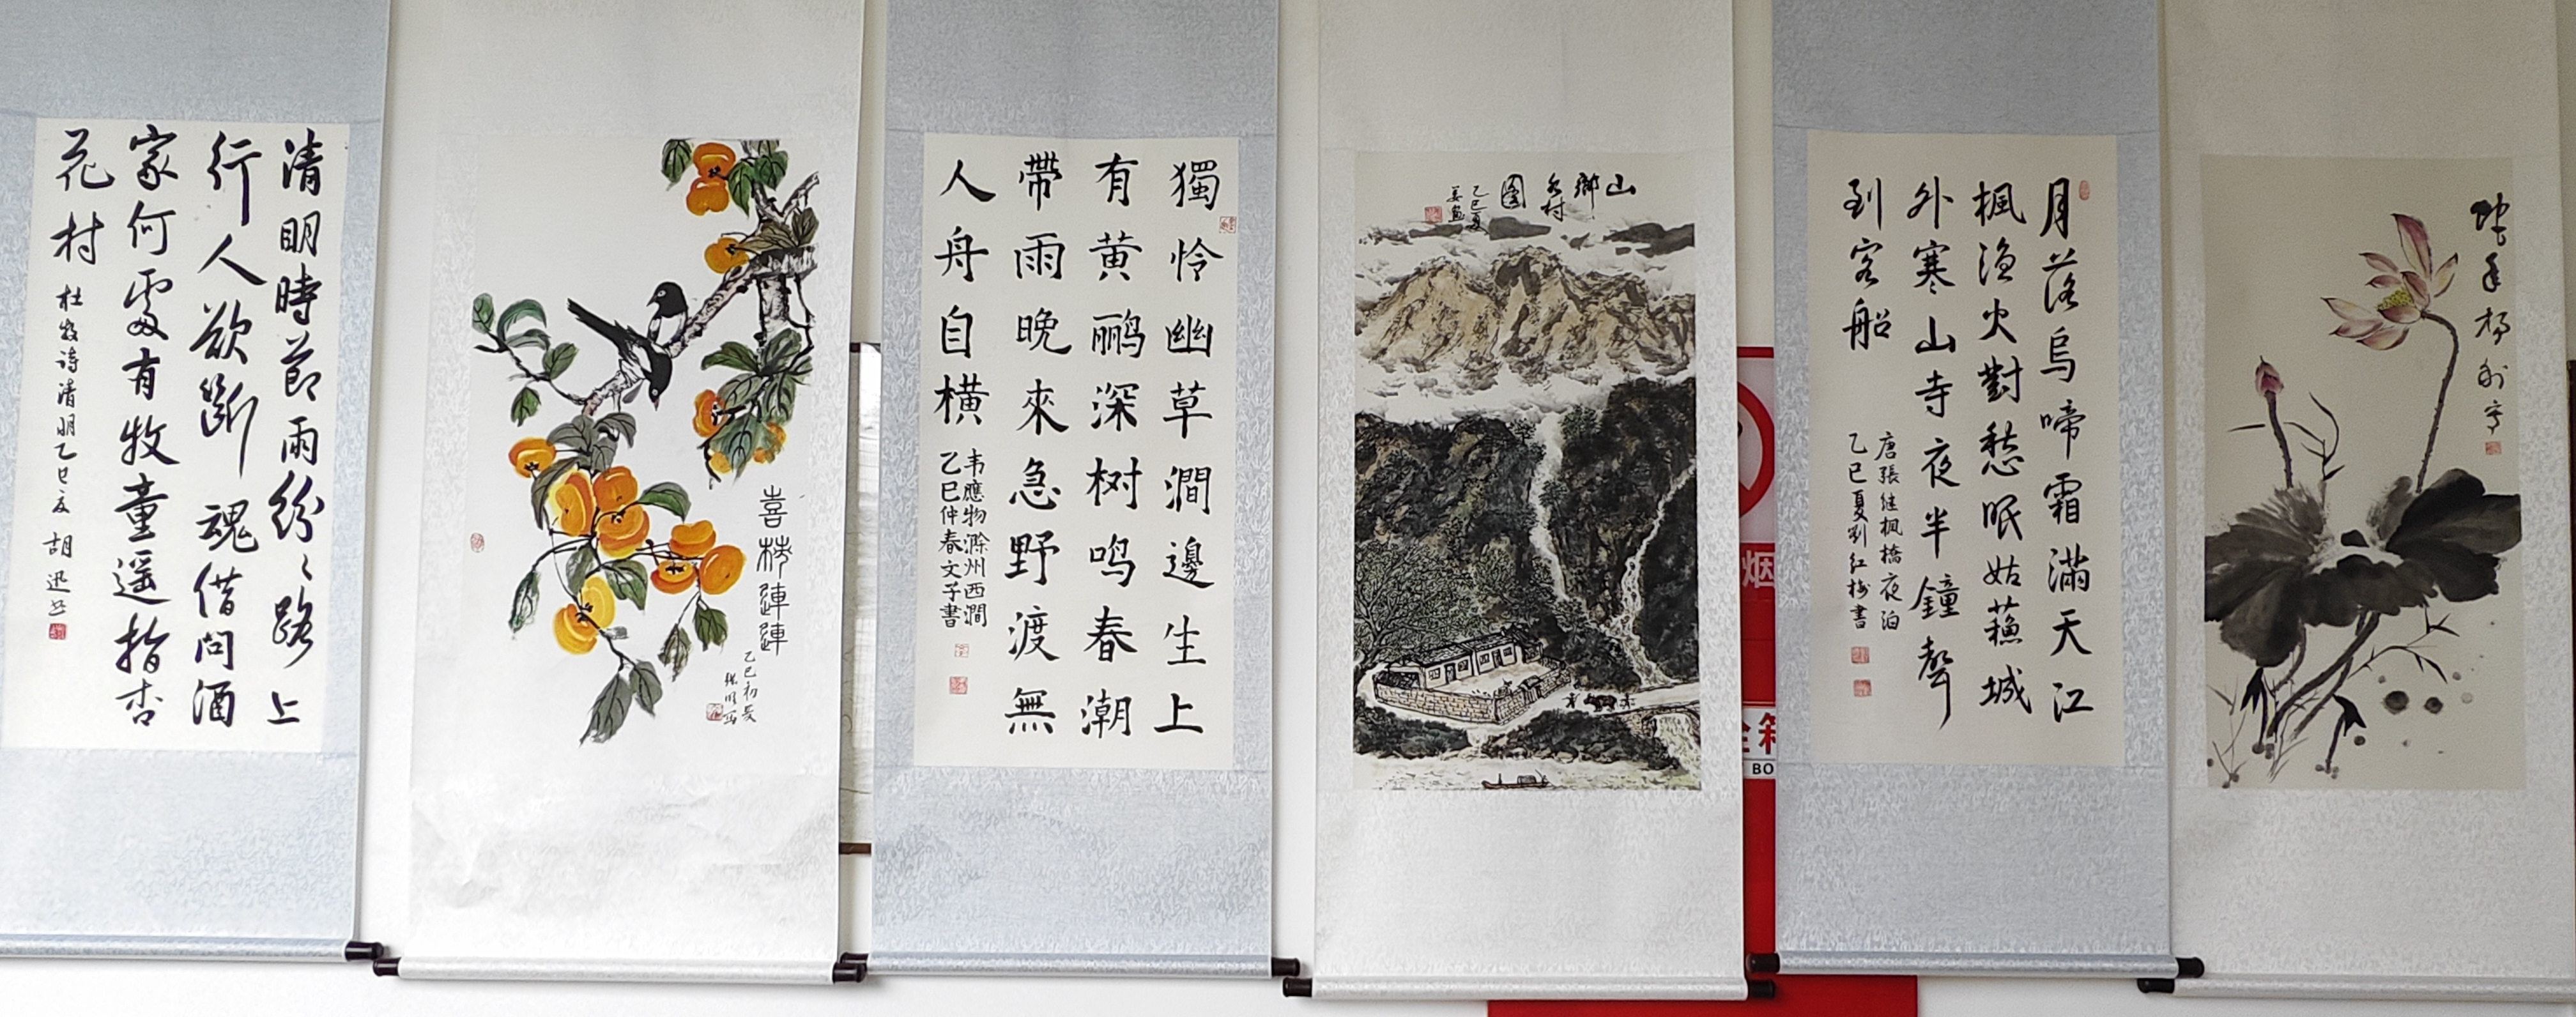 清明時節雨紛〻路上
行人欲斷魂借问酒
家何處有牧童遥指杏
花村
杜牧诗清明乙巳夏 胡迅书
喜柿連連
乙巳初夏
獨怜幽草澗邊生上
有黄鹂深树鸣春潮
帶雨晚來急野渡無
人舟自横
韦應物滁州西澗
乙巳仲春文子書
山鄉
图
乙巳夏
月落烏啼霜滿天江
楓漁火對愁眠姑蘓城
外寒山寺夜半鐘聲
到客船
唐張继楓橋夜泊
乙巳夏劉红梅書
烟
BO